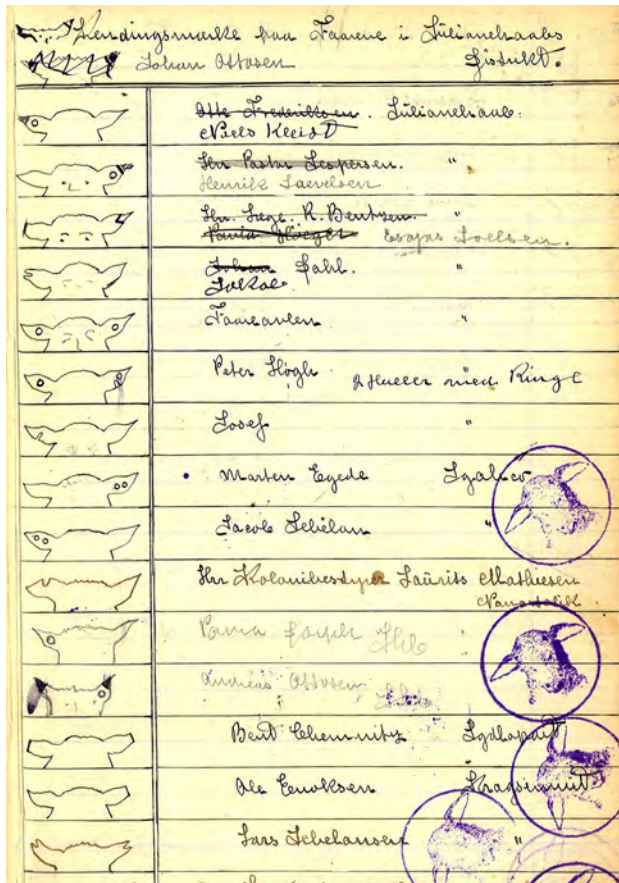 Kendingsmærke paa Faarene i Julianehaabs
Johan Ottosen Distrikt.
Otto Frederiksen. Julianehaab.
Niels Kleist
Hr. Pastor Jespersen. "
Henrik
Hr. Læge. R. Bentzen. "
Pavia Høegh Esajas Joelsen.
Johan Dahl. "
Jakob.
Faareavlen "
Peter Høgh 2 Huller med Ringe
Josef "
Morten Egede Igaliko
Jacob "
Hr Kolonibestyrer Laurits Mathiesen
Nanortalik
Pavia Høegh Jhb "
Andreas Ottosen Jhb
Bent Chemnitz
Ole Enoksen
Lars "